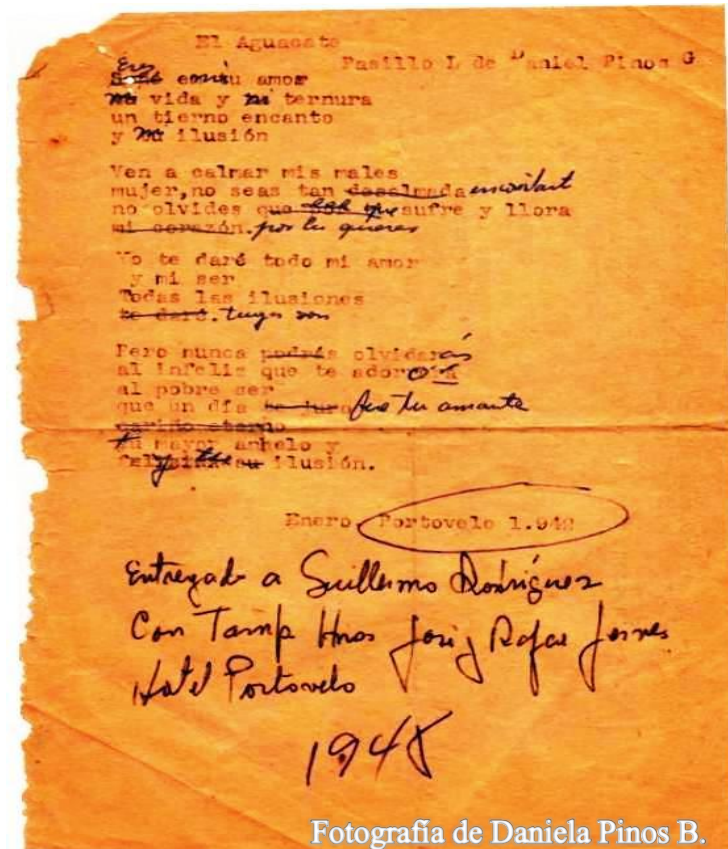 El Aguacate
Pasillo L de Daniel Pinos G
Eres mi amor
mi vida y mi ternura
un tierno encanto
y mi ilusión
Ven a calmar mis males
mujer, no seas tan desalmada inconstant
no olvides que que sufre y llora
mi corazón. por tu quereres
Yo te daré todo mi amor
y mi ser
Todas las ilusiones
te daré. tuyas son
Pero nunca podrás olvidarás
al infeliz que te adorora
al pobre ser
que un día te jura fue tu amante
cariño eterno
tu mayor anhelo y
y su ilusión.
Enero, Portovelo 1.942
Entregado a Guillermo Rodríguez
Con Tamp Hnos José y Rafael
Hotel Portovelo
1948
Fotografía de Daniela Pinos B.